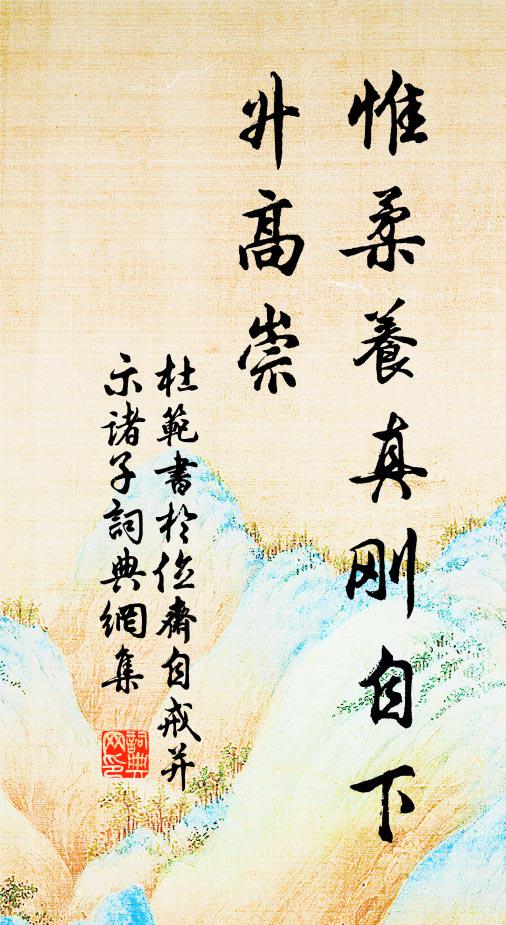 惟柔養真刚自下
升高崇
杜範書於儉齋自戒并
示诸子詞典網集
詞典
网印